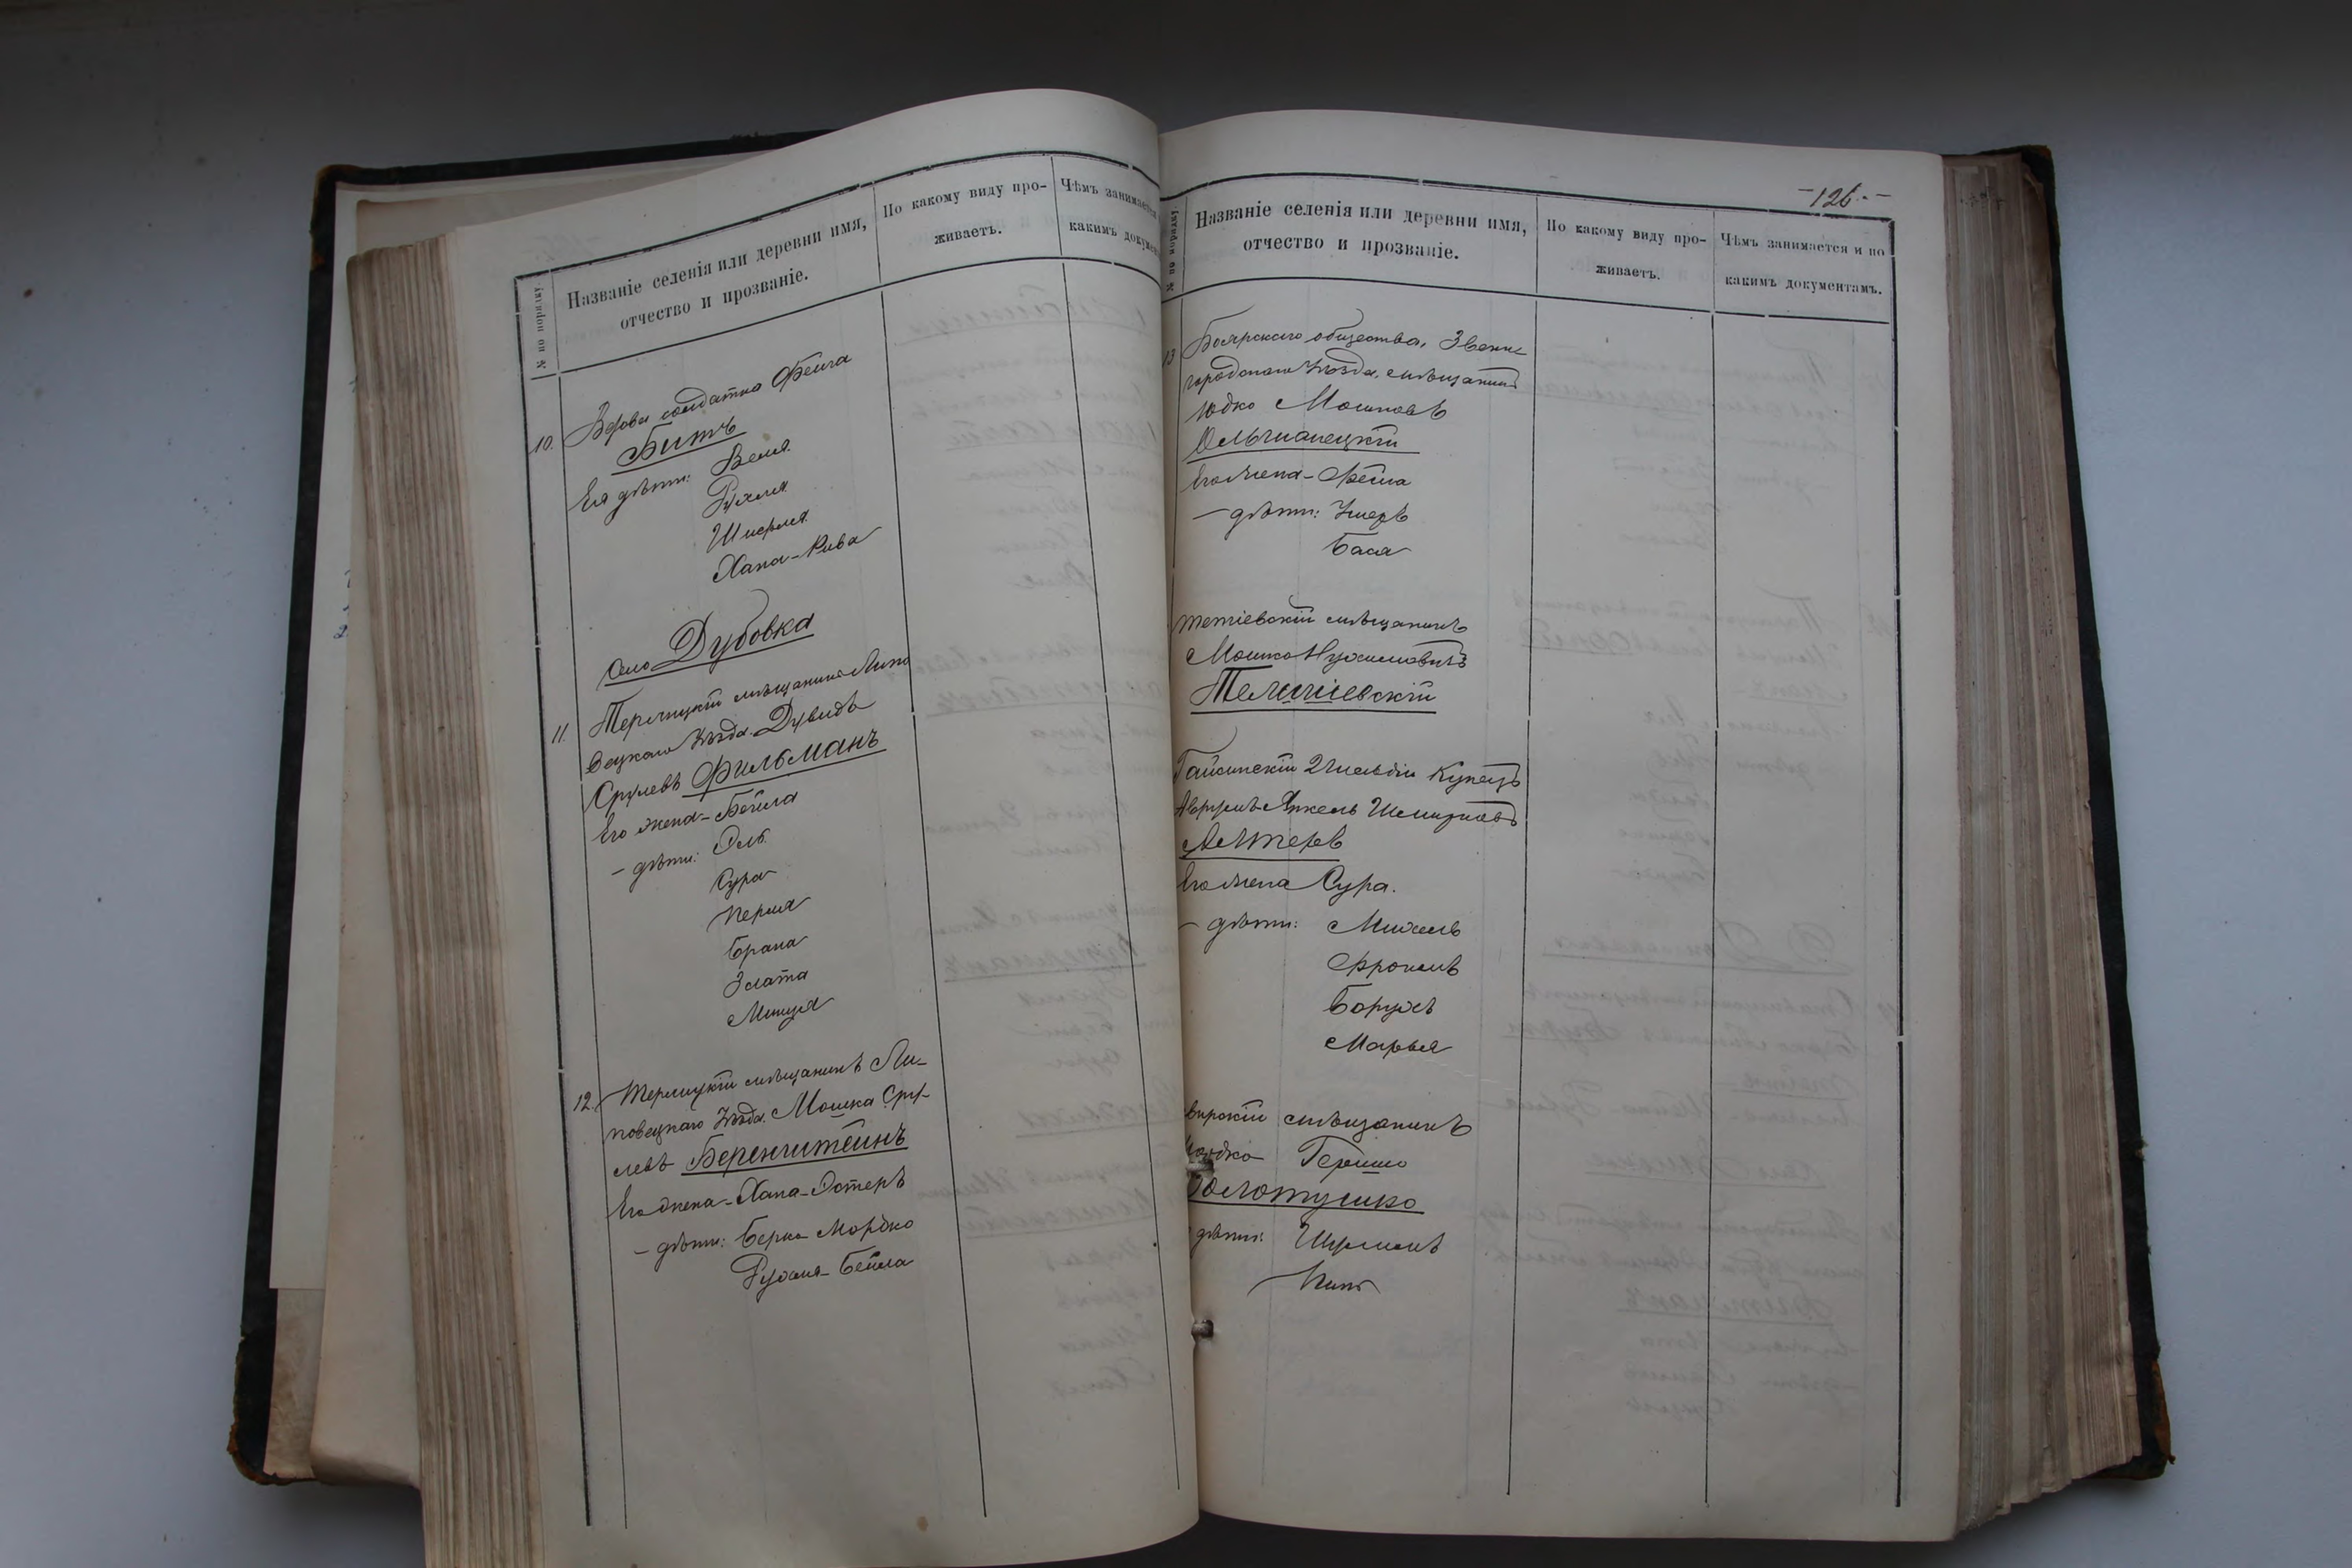 № по порядку.
Названіе селенія или деревни имя,
отчество и прозваніе.
По какому виду про-
живаетъ.
Чѣмъ занимается
какимъ докумен
10.
Вдова солдатка Фейга
Битъ
Ея дѣти: Веля
Рухля
Шифля
Хана-Рива
Село Дубовка
11.
Терлицкій мѣщанинъ Липо
вецкаго Уѣзда. Дувидъ
Срулевъ Фильманъ
Его жена-Бейла
- дѣти: Эль
Сура
Перля
Брана
Злата
Минця
12.
Терлицкій мѣщанинъ Ли-
повецкаго Уѣзда. Мошка Сру-
левъ Беренштейнъ
Его жена-Хана-Эстеръ
- дѣти: Берко Мордко
Рухля-Бейла
-126.-
№ по порядку.
Названіе селенія или деревни имя,
отчество и прозваніе.
По какому виду про-
живаетъ.
Чѣмъ занимается и по
какимъ документамъ.
13
Боярскаго общества, Звени
городскаго Уѣзда, мѣщанинъ
Юдко Мошковъ
Ольшанецкій
Его жена-Фейга
- дѣти: Ушеръ
Бася
Тетіевскій мѣщанинъ
Мошко Нухимовичъ
Гайсинскій 2 гильдіи Купецъ
Аврумъ-Янкель
Алтеръ
Его жена Сура.
- дѣти: Михель
Фроимъ
Борухъ
Марья
мѣщанинъ
Гершко
дѣти: Шулимъ